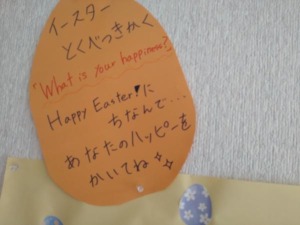 イースター
とくべつきかく
"What is your happiness?"
Happy Easter!に
ちなんで...
あなたのハッピーを
かいてね